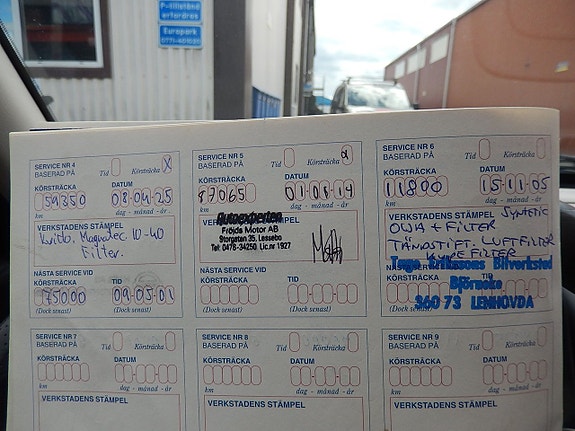 P-tillstånd
erfordras
Europark
SERVICE NR 4
BASERAD PÅ
Tid
Körsträcka X
KÖRSTRÄCKA
DATUM
59350
08-04-25
km
dag - månad - år
VERKSTADENS STÄMPEL
Kvitto. Magnatec 10-40
Filter.
NÄSTA SERVICE VID
KÖRSTRÄCKA
TID
75000
09-05-01
(Dock senast)
(Dock senast)
SERVICE NR 5
BASERAD PÅ
Tid
Körsträcka
KÖRSTRÄCKA
DATUM
87065
01-08-14
km
dag - månad - år
VERKSTADENS STÄMPEL
Autoexperten
Fröjds Motor AB
Storgatan 35, Lessebo
Tel: 0478-34250 Lic.nr 1927
NÄSTA SERVICE VID
KÖRSTRÄCKA
TID
(Dock senast)
(Dock senast)
SERVICE NR 6
BASERAD PÅ
Tid
Körsträcka
KÖRSTRÄCKA
DATUM
11800
15-11-05
km
dag - månad - år
VERKSTADENS STÄMPEL
SYNTETIC
OLJA + FILTER
TÄNDSTIFT. LUFTFILTER
KUPE FILTER
Tage Erikssons Bilverkstad
Björneke
360 73 LENHOVDA
(Dock senast)
(Dock senast)
SERVICE NR 7
BASERAD PÅ
Tid
Körsträcka
KÖRSTRÄCKA
DATUM
km
dag - månad - år
VERKSTADENS STÄMPEL
SERVICE NR 8
BASERAD PÅ
Tid
Körsträcka
KÖRSTRÄCKA
DATUM
km
dag - månad - år
VERKSTADENS STÄMPEL
SERVICE NR 9
BASERAD PÅ
Tid
Körsträcka
KÖRSTRÄCKA
DATUM
km
dag - månad - år
VERKSTADENS STÄMPEL